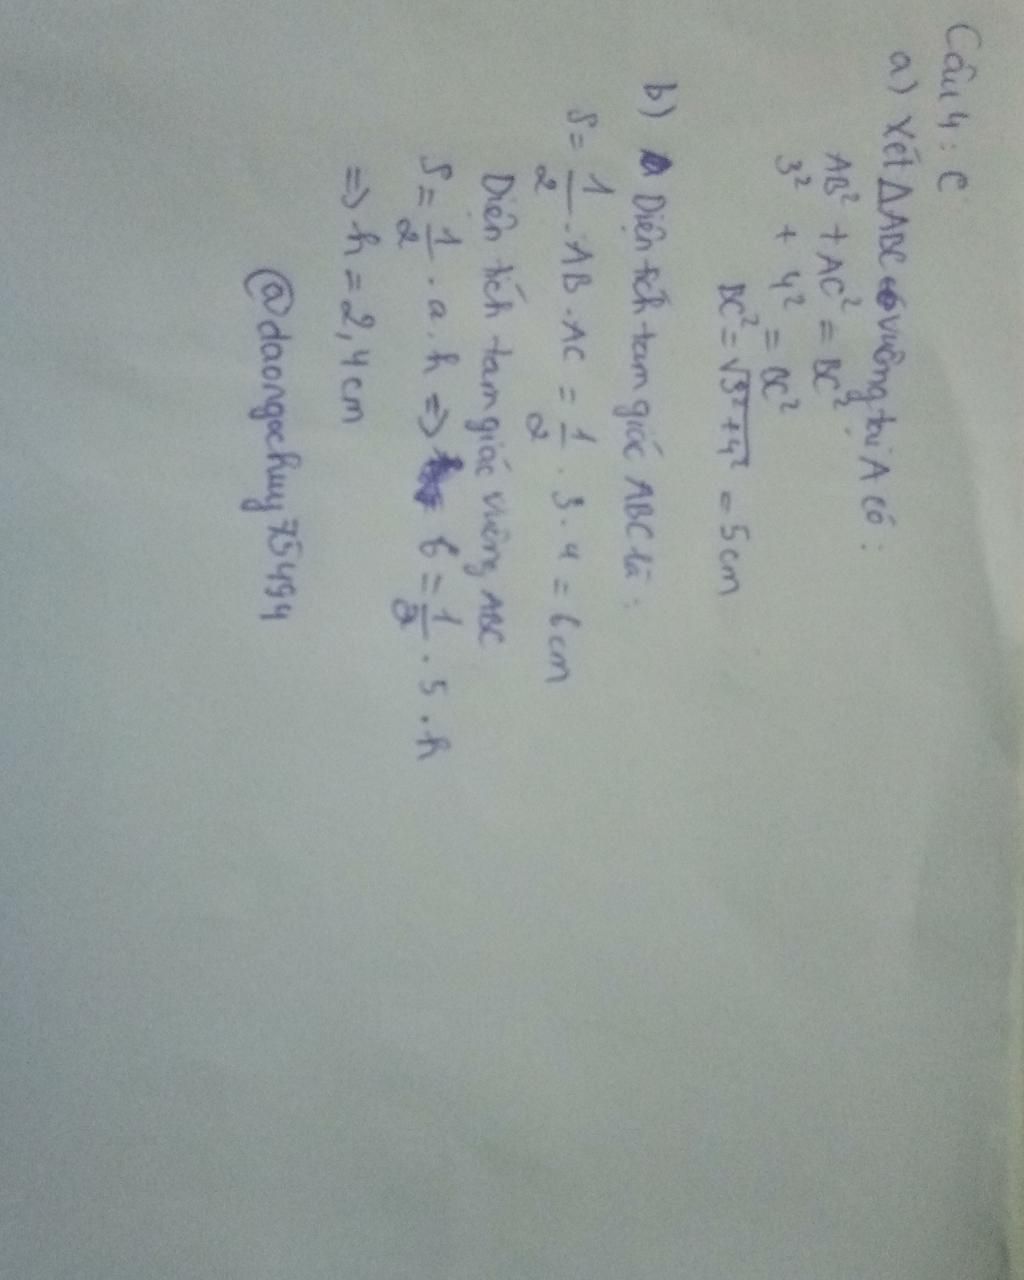 Câu 4: C
a) Xét ΔABC vuông tại A có:
AB² + AC² = BC²
3² + 4² = BC²
BC² = √3²+4² = 5cm
b) Diện tích tam giác ABC là:
S = 1/2 . AB . AC = 1/2 . 3 . 4 = 6cm
Diện tích tam giác vuông ABC
S = 1/2 . a . h => 6 = 1/2 . 5 . h
=> h = 2,4cm
@daongochuy75494